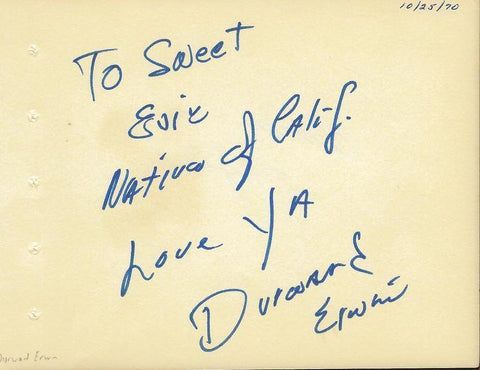 10/25/70
To Sweet
Evie
Native of Calif.
Love YA
Durward
Erwin
Durward Erwin